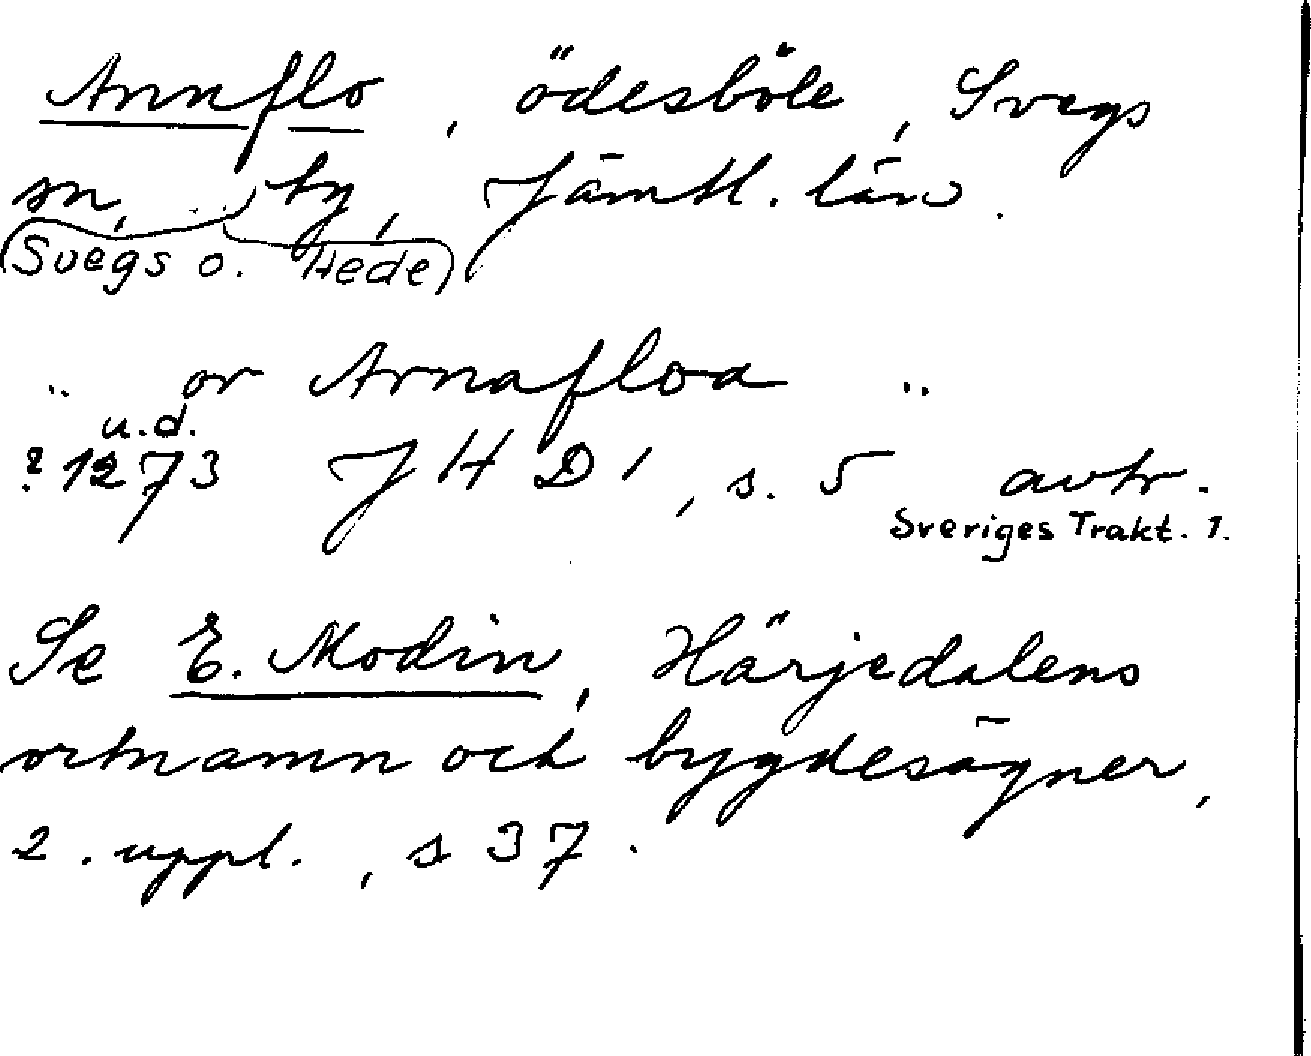 Annflo, ödesböle, Svegs
sn, ty, Jämtl. län.
(Svegs o. Hede)
.. or Arnafloa ..
u.d.
? 1273 JHD 1, s. 5 avtr.
Sveriges Trakt. 1.
Se E. Modin, Härjedalens
ortnamn och bygdesägner,
2. uppl., s 37.